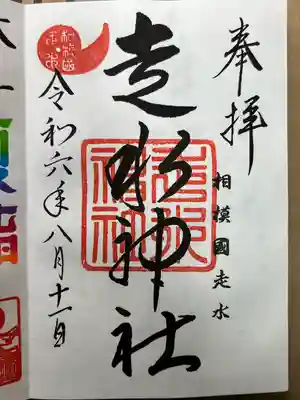 奉拝
相模國走水
走水神社
走水神社
令和六年八月十一日